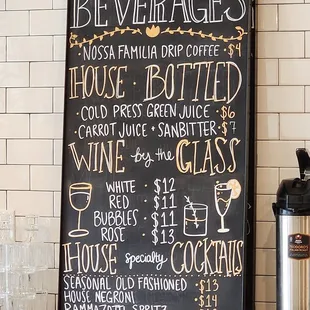 BEVERAGES
· NOSSA FAMILIA DRIP COFFEE · $4
HOUSE · BOTTLED
· COLD PRESS GREEN JUICE · $6
· CARROT JUICE + SANBITTER · $7
WINE by the GLASS
WHITE · $12
RED · $11
BUBBLES · $11
ROSE · $13
HOUSE specialty COCKTAILS
SEASONAL OLD FASHIONED · $13
HOUSE NEGRONI · $14
RAMMAZOTTI SPRITZ